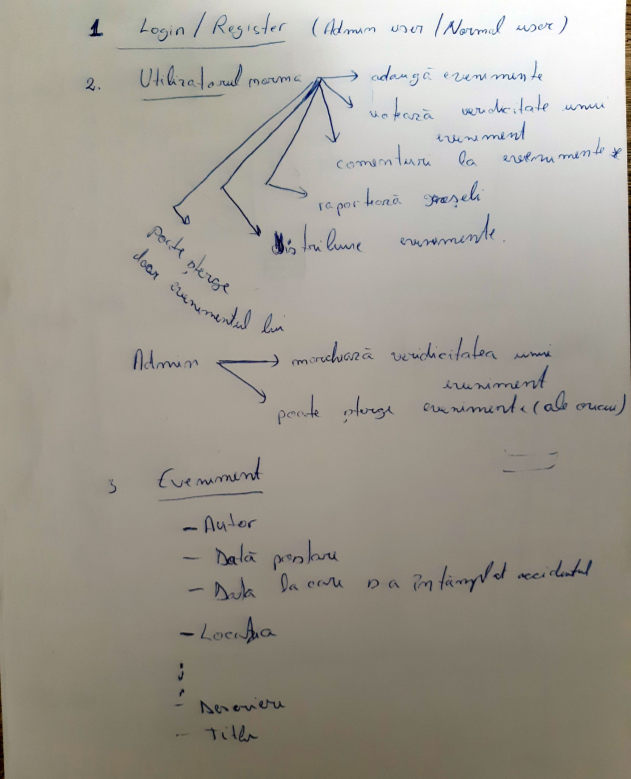 1 Login / Register (Admin user / Normal user)
2. Utilizatorul normal
adaugă evenimente
votează veridicitate unui
eveniment
comenturi la evenimente
raportează greșeli
distribuie evenimente.
poate șterge
doar evenimentul lui
Admin
marchează veridicitatea unui
eveniment
poate șterge evenimente (ale oricui)
3 Eveniment
- Autor
- Dată postare
- Data la care s-a întâmplat accidentul
- Locația
- Descriere
- Titlu